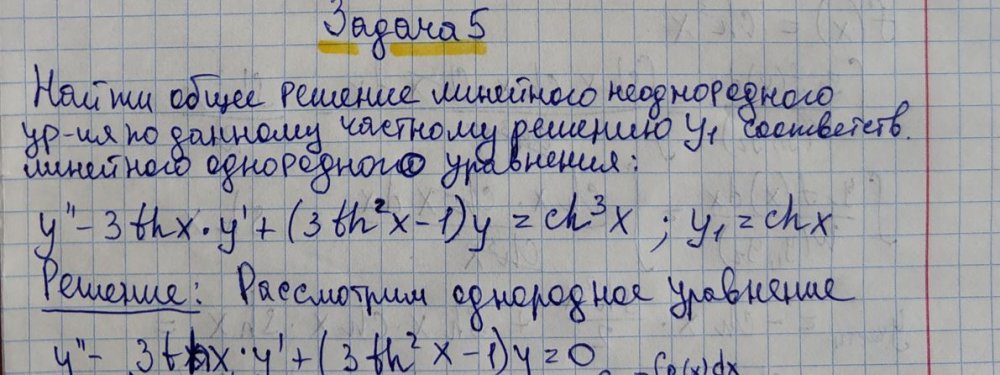 Задача 5
Найти общее решение линейного неоднородного
ур-ия по данному частному решению y₁ соответств.
линейного однородного уравнения:
y'' - 3thx · y' + (3th²x - 1)y = ch³x ; y₁ = chx
Решение: Рассмотрим однородное уравнение
y'' - 3thx · y' + (3th²x - 1)y = 0